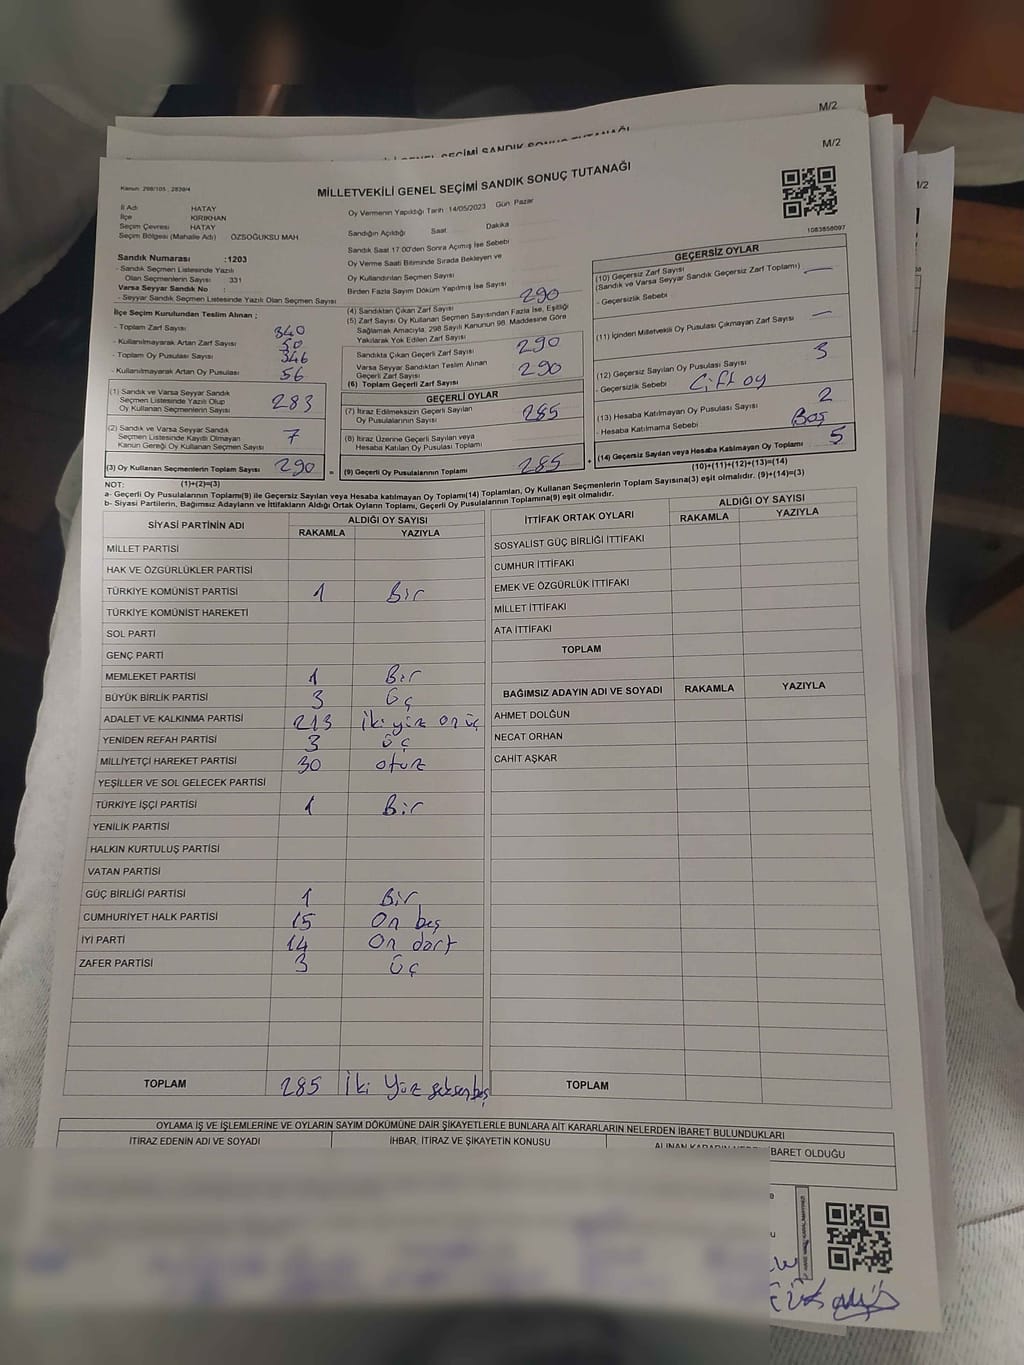 M/2
M/2
Kanun: 298/105 , 2839/4
MİLLETVEKİLİ GENEL SEÇİMİ SANDIK SONUÇ TUTANAĞI
İl Adı HATAY
İlçe KIRIKHAN
Seçim Çevresi HATAY
Seçim Bölgesi (Mahalle Adı) : ÖZSOĞUKSU MAH
Sandık Numarası :1203
- Sandık Seçmen Listesinde Yazılı
Olan Seçmenlerin Sayısı 331
Varsa Seyyar Sandık No :
- Seyyar Sandık Seçmen Listesinde Yazılı Olan Seçmen Sayısı
İlçe Seçim Kurulundan Teslim Alınan ;
- Toplam Zarf Sayısı 340
- Kullanılmayarak Artan Zarf Sayısı 50
- Toplam Oy Pusulası Sayısı 346
- Kullanılmayarak Artan Oy Pusulası 56
(1) Sandık ve Varsa Seyyar Sandık
Seçmen Listesinde Yazılı Olup
Oy Kullanan Seçmenlerin Sayısı 283
(2) Sandık ve Varsa Seyyar Sandık
Seçmen Listesinde Kayıtlı Olmayan
Kanun Gereği Oy Kullanan Seçmen Sayısı 7
(3) Oy Kullanan Seçmenlerin Toplam Sayısı 290
(1)+(2)=(3)
Oy Vermenin Yapıldığı Tarih 14/05/2023 Gün: Pazar
Sandığın Açıldığı Saat: Dakika
Sandık Saat 17:00'den Sonra Açılmış İse Sebebi
Oy Verme Saati Bitiminde Sırada Bekleyen ve
Oy Kullandırılan Seçmen Sayısı
Birden Fazla Sayım Döküm Yapılmış İse Sayısı
(4) Sandıktan Çıkan Zarf Sayısı 290
(5) Zarf Sayısı Oy Kullanan Seçmen Sayısından Fazla İse, Eşitliği
Sağlamak Amacıyla, 298 Sayılı Kanunun 98. Maddesine Göre
Yakılarak Yok Edilen Zarf Sayısı
Sandıkta Çıkan Geçerli Zarf Sayısı 290
Varsa Seyyar Sandıktan Teslim Alınan
Geçerli Zarf Sayısı
(6) Toplam Geçerli Zarf Sayısı 290
GEÇERLİ OYLAR
(7) İtiraz Edilmeksizin Geçerli Sayılan
Oy Pusulalarının Sayısı 285
(8) İtiraz Üzerine Geçerli Sayılan veya
Hesaba Katılan Oy Pusulası Toplamı
= (9) Geçerli Oy Pusulalarının Toplamı 285 +
1083858097
GEÇERSİZ OYLAR
(10) Geçersiz Zarf Sayısı
(Sandık ve Varsa Seyyar Sandık Geçersiz Zarf Toplamı) —
- Geçersizlik Sebebi
(11) İçinden Milletvekili Oy Pusulası Çıkmayan Zarf Sayısı —
(12) Geçersiz Sayılan Oy Pusulası Sayısı 3
- Geçersizlik Sebebi Çift oy
(13) Hesaba Katılmayan Oy Pusulası Sayısı 2
- Hesaba Katılmama Sebebi Boş
(14) Geçersiz Sayılan veya Hesaba Katılmayan Oy Toplamı 5
(10)+(11)+(12)+(13)=(14)
NOT:
a- Geçerli Oy Pusulalarının Toplamı(9) ile Geçersiz Sayılan veya Hesaba katılmayan Oy Toplamı(14) Toplamları, Oy Kullanan Seçmenlerin Toplam Sayısına(3) eşit olmalıdır. (9)+(14)=(3)
b- Siyasi Partilerin, Bağımsız Adayların ve İttifakların Aldığı Ortak Oyların Toplamı, Geçerli Oy Pusulalarının Toplamına(9) eşit olmalıdır.
SİYASİ PARTİNİN ADI ALDIĞI OY SAYISI
RAKAMLA YAZIYLA
MİLLET PARTİSİ
HAK VE ÖZGÜRLÜKLER PARTİSİ
TÜRKİYE KOMÜNİST PARTİSİ 1 Bir
TÜRKİYE KOMÜNİST HAREKETİ
SOL PARTİ
GENÇ PARTİ
MEMLEKET PARTİSİ 1 Bir
BÜYÜK BİRLİK PARTİSİ 3 Üç
ADALET VE KALKINMA PARTİSİ 213 İki yüz on üç
YENİDEN REFAH PARTİSİ 3 üç
MİLLİYETÇİ HAREKET PARTİSİ 30 otuz
YEŞİLLER VE SOL GELECEK PARTİSİ
TÜRKİYE İŞÇİ PARTİSİ 1 Bir
YENİLİK PARTİSİ
HALKIN KURTULUŞ PARTİSİ
VATAN PARTİSİ
GÜÇ BİRLİĞİ PARTİSİ 1 Bir
CUMHURİYET HALK PARTİSİ 15 On beş
İYİ PARTİ 14 On dört
ZAFER PARTİSİ 3 Üç
TOPLAM 285 İki Yüz seksen beş
İTTİFAK ORTAK OYLARI ALDIĞI OY SAYISI
RAKAMLA YAZIYLA
SOSYALİST GÜÇ BİRLİĞİ İTTİFAKI
CUMHUR İTTİFAKI
EMEK VE ÖZGÜRLÜK İTTİFAKI
MİLLET İTTİFAKI
ATA İTTİFAKI
TOPLAM
BAĞIMSIZ ADAYIN ADI VE SOYADI RAKAMLA YAZIYLA
AHMET DOLĞUN
NECAT ORHAN
CAHİT AŞKAR
TOPLAM
OYLAMA İŞ VE İŞLEMLERİNE VE OYLARIN SAYIM DÖKÜMÜNE DAİR ŞİKAYETLERLE BUNLARA AİT KARARLARIN NELERDEN İBARET BULUNDUKLARI
İTİRAZ EDENİN ADI VE SOYADI İHBAR, İTİRAZ VE ŞİKAYETİN KONUSU ALINAN KARARIN BARET OLDUĞU